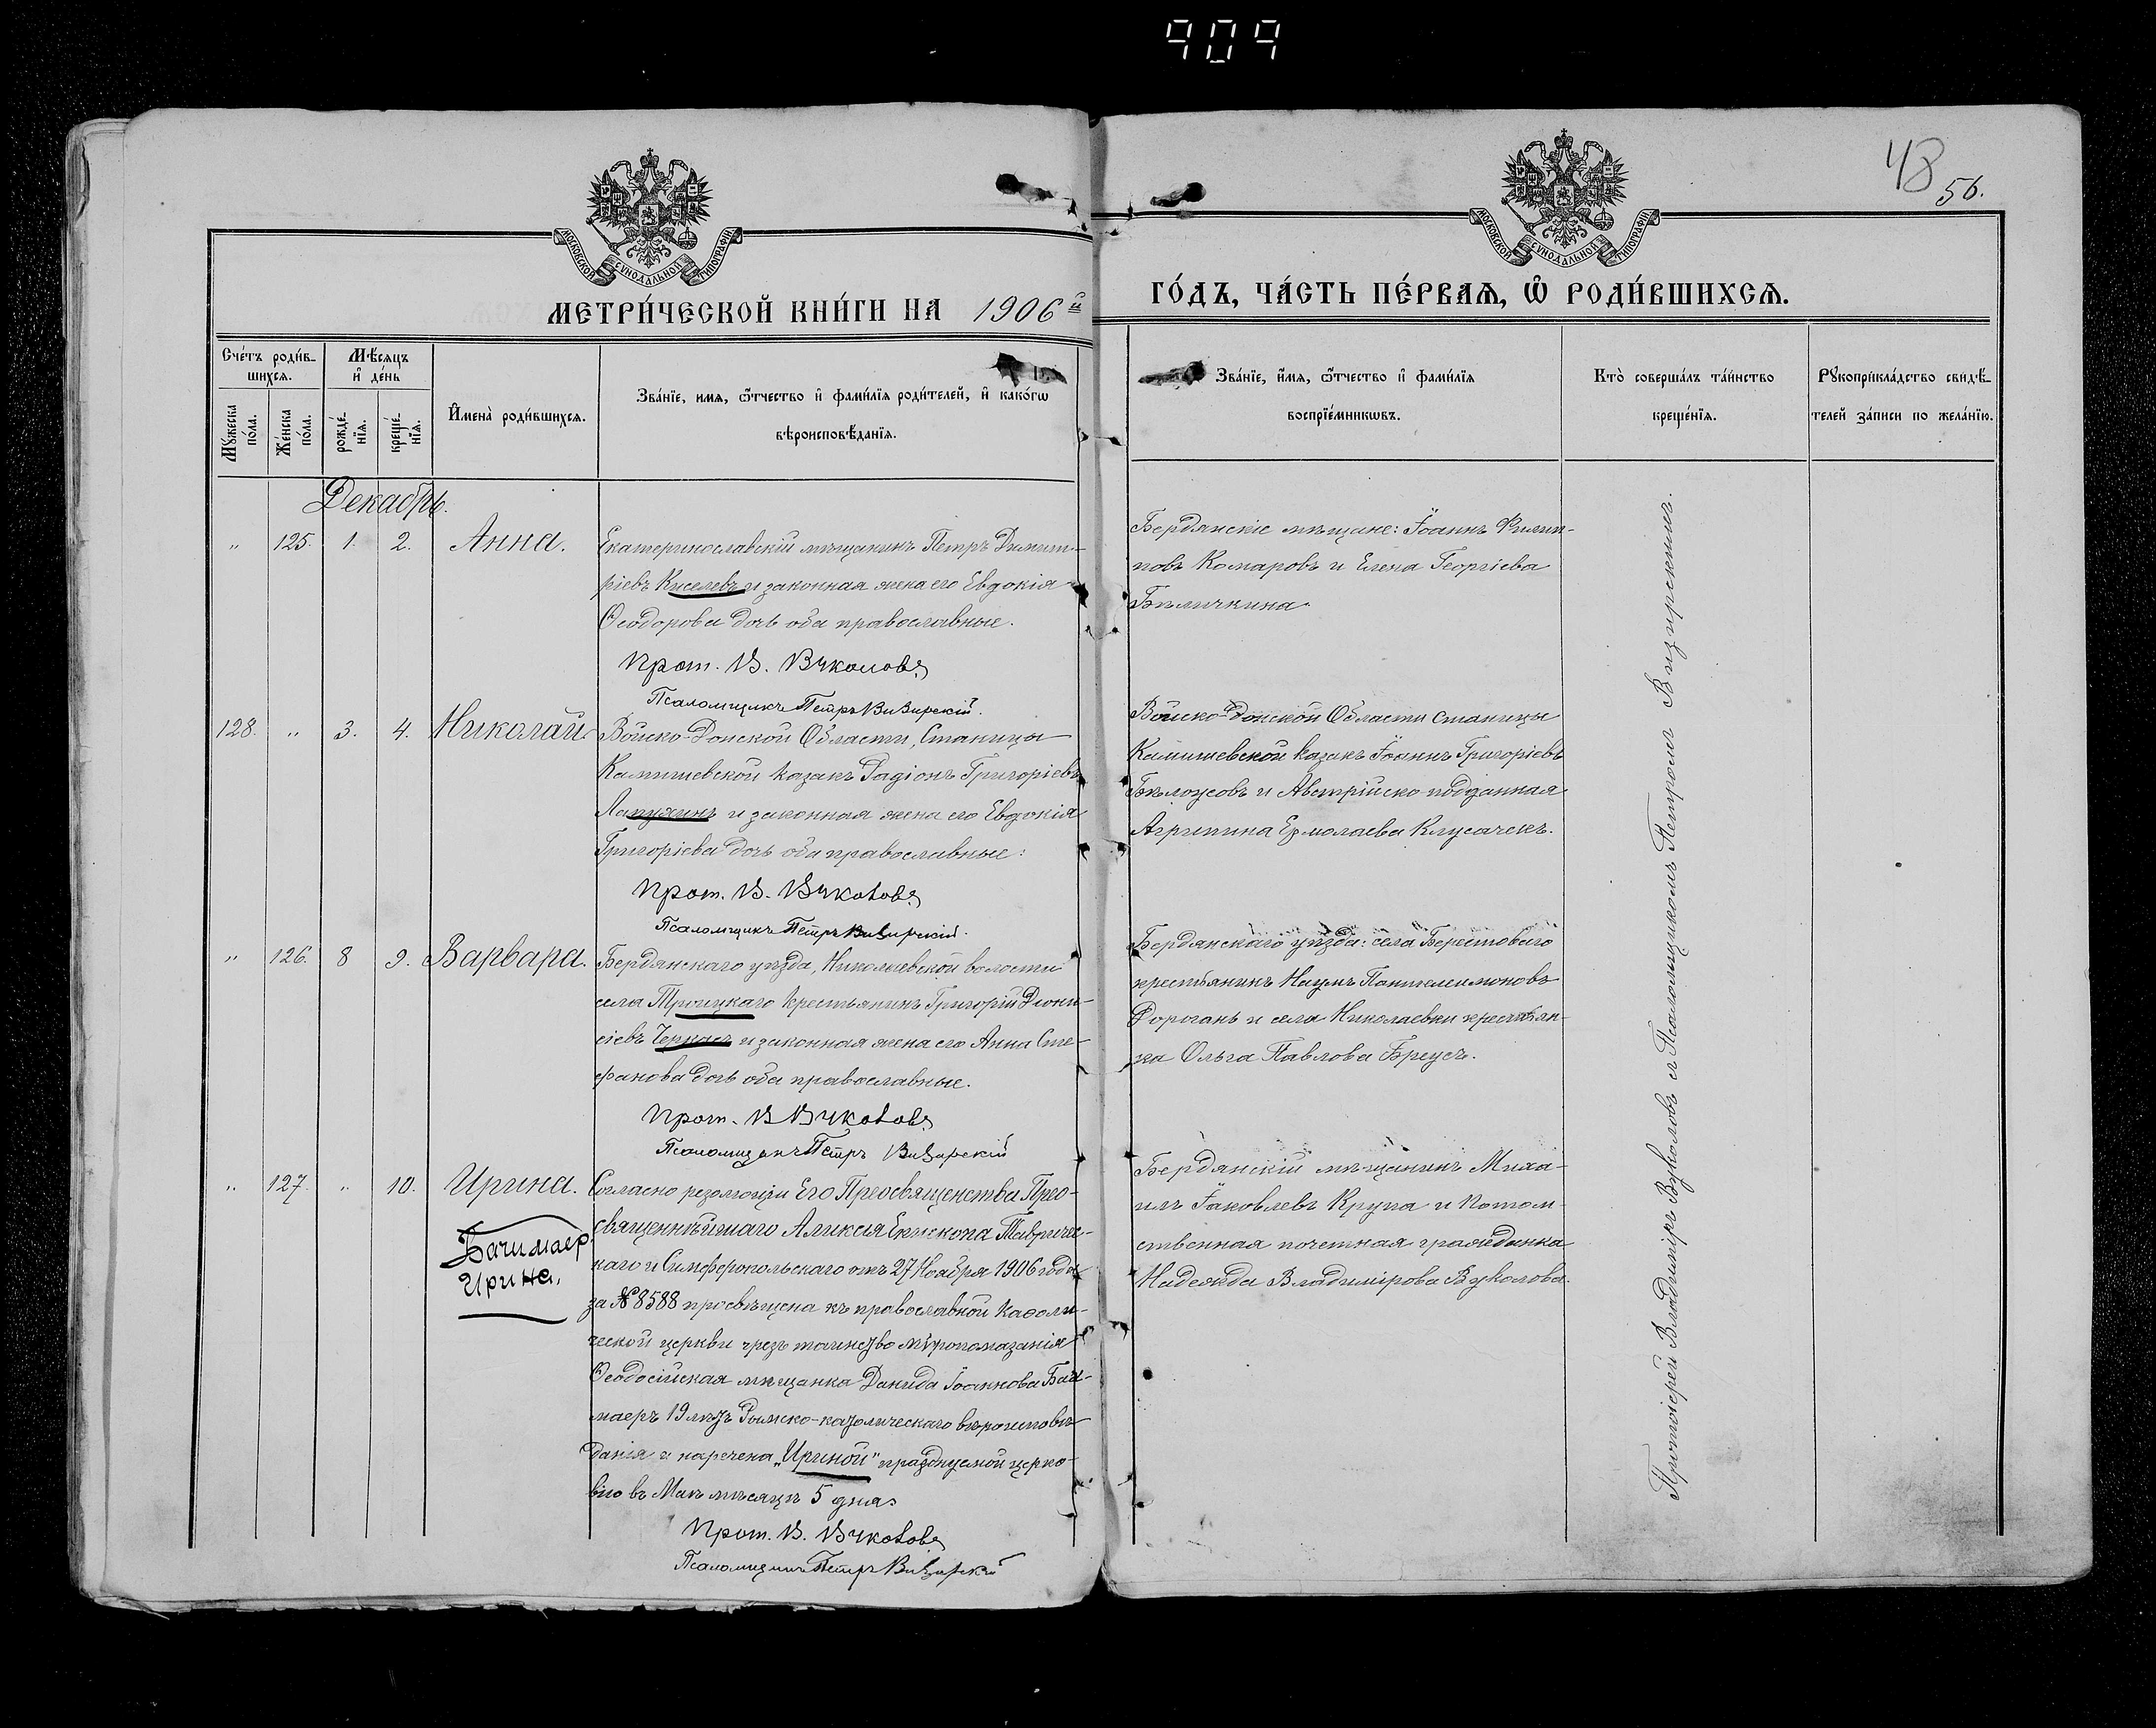 909
48
56.
МОСКОВСКОЙ СѴНОДАЛЬНОЙ ТИПОГРАФІИ
МОСКОВСКОЙ СѴНОДАЛЬНОЙ ТИПОГРАФІИ
МЕТРИ́ЧЕСКОЙ КНИ́ГИ НА 1906й
ГО́ДЪ, ЧА́СТЬ ПЕ́РВАЯ, Ѡ҆ РОДИ́ВШИХСЯ.
Сче́тъ роди́в-
шихся.
Мѣ́сяцъ
и҆ де́нь
Му́жеска
по́ла.
Же́нска
по́ла.
рожде́-
нїя.
креще́-
нїя.
И҆мена̀ роди́вшихся.
Зва́нїе, имя, ѻ҆́тчество и҆ фами́лїя роди́телей, и҆ како́гѡ
вѣроисповѣ́данїя.
Зва́нїе, и҆́мя, ѻ҆́тчество и҆ фами́лїя
воспрїе́мникѡвъ.
Кто̀ соверша́лъ та́инство
креще́нїя.
Рꙋкоприкла́дство свидѣ́-
телей за́писи по жела́нїю.
Декабрь.
" 125. 1. 2. Анна.
Екатеринославскій мѣщанинъ Петръ Димит-
ріевъ Киселевъ и законная жена его Евдокія
Ѳеодорова дочь оба православные.
Прот. В. Вуколовъ
Псаломщикъ Петръ Визирскій.
Бердянскіе мѣщане: Іоаннъ Филип-
повъ Комаровъ и Елена Георгіева
Бѣличкина
128. " 3. 4. Николай.
Войско-Донской Области, Станицы
Камышевской казакъ Радіонъ Григорьевъ
Лапухинъ и законная жена его Евдокія
Григоріева дочь оба православные:
Прот. В. Вуколовъ
Псаломщикъ Петръ Визирскій.
Войско-Донской Области станицы
Камышевской казакъ Іоаннъ Григоріевъ
Бѣлоусовъ и Австрійско-подданная
Агрипина Ермолаева Клусачекъ.
" 126. 8 9. Варвара.
Бердянскаго уѣзда, Николаевской волости
села Троицкаго крестьянинъ Григорій Діони-
сіевъ Черкасъ и законная жена его Анна Сте-
фанова дочь оба православные.
Прот. В Вуколовъ
Псаломщикъ Петръ Визирскій
Бердянскаго уѣзда: села Берестоваго
крестьянинъ Наумъ Пантелеимоновъ
Дорогань и села Николаевки крестьян-
ка Ольга Павлова Бреусъ.
" 127. " 10. Ирина.
Бачимаер
Ирина.
Согласно резолюціи Его Преосвященства Прео-
священнѣйшаго Алексія Епископа Тавричес-
каго и Симферопольскаго отъ 27 Ноября 1906 года
за № 8588 просвѣщена къ православной каѳоли-
ческой церкви чрезъ таинство мѵропомазанія
Ѳеодосійская мѣщанка Іоаннова
маеръ 19 лѣтъ Римско-католическаго вѣроисповѣ-
данія и наречена „Ириной" празднуемой церко-
вію въ Маѣ мѣсяцѣ 5 дня
Прот. В. Вуколовъ
Псаломщикъ Петръ Визирскій
Бердянскій мѣщанинъ Миха-
илъ Іаковлевъ Крупа и Потом-
ственная почетная гражданка
Надежда Владимірова Вуколова.
Протоіерей Владиміръ Вуколовъ съ Псаломщикомъ Петромъ Визирскимъ.